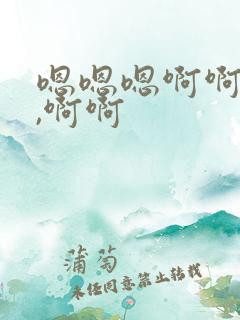 嗯嗯嗯啊啊
,啊啊
蒲萄
未经同意禁止转载